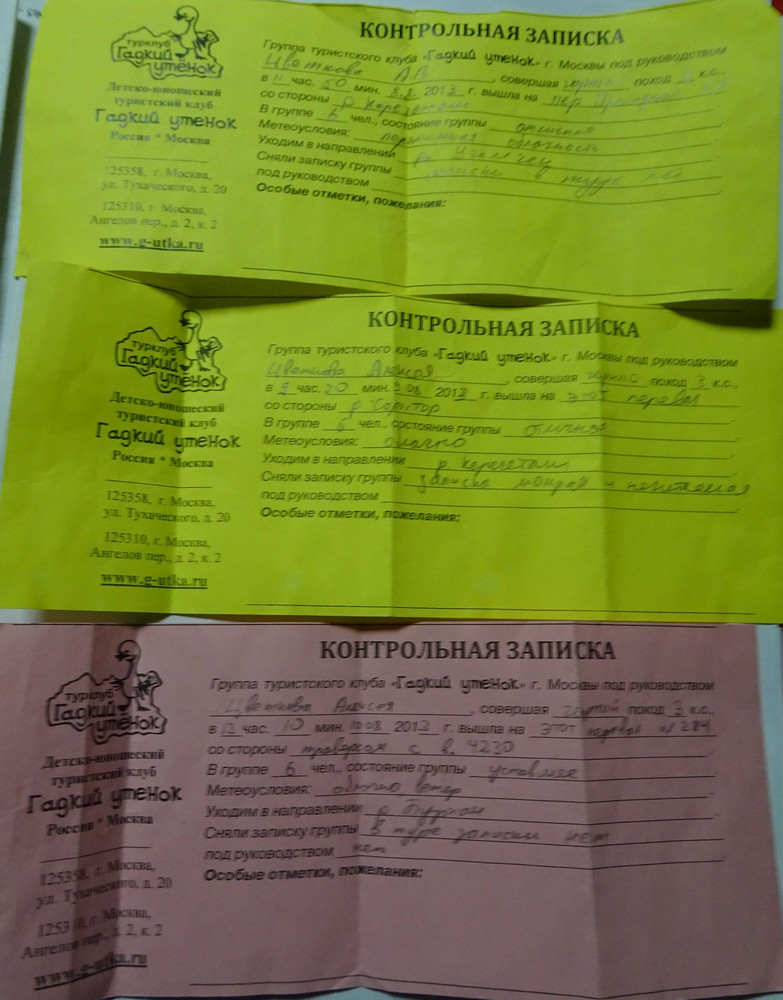 турклуб
Гадкий
утенок
Детско-юношеский
туристский клуб
Гадкий утенок
Россия * Москва
125358, г. Москва,
ул. Тухаческого, д. 20
125310, г. Москва,
Ангелов пер., д. 2, к. 2
www.g-utka.ru
КОНТРОЛЬНАЯ ЗАПИСКА
Группа туристского клуба «Гадкий утенок» г. Москвы под руководством
Цветкова А В, совершая горный поход к.с.,
в 11 час. 50 мин. 8.8 2013 г. вышла на пер.
со стороны р
В группе 6 чел., состояние группы отличное
Метеоусловия: переменная облачность
Уходим в направлений р.
Сняли записку группы записки в туре нет
под руководством
Особые отметки, пожелания:
турклуб
Гадкий
утенок
Детско-юношеский
туристский клуб
Гадкий утенок
Россия * Москва
125358, г. Москва,
ул. Тухаческого, д. 20
125310, г. Москва,
Ангелов пер., д. 2, к. 2
www.g-utka.ru
КОНТРОЛЬНАЯ ЗАПИСКА
Группа туристского клуба «Гадкий утенок» г. Москвы под руководством
Цветкова Алексея, совершая горный поход 3 к.с.,
в 9 час. 20 мин. 9.08 2013 г. вышла на этот перевал
со стороны р
В группе 6 чел., состояние группы отличное
Метеоусловия: облачно
Уходим в направлении р.
Сняли записку группы записка мокрая и
под руководством
Особые отметки, пожелания:
турклуб
Гадкий
утенок
Детско-юношеский
туристский клуб
Гадкий утенок
Россия * Москва
125358, г. Москва,
ул. Тухаческого, д. 20
125310, г. Москва,
Ангелов пер., д. 2, к. 2
www.g-utka.ru
КОНТРОЛЬНАЯ ЗАПИСКА
Группа туристского клуба «Гадкий утенок» г. Москвы под руководством
Цветкова Алексея, совершая горный поход 3 к.с.,
в 12 час. 10 мин. 10 08 2013 г. вышла на этот перевал № 284
со стороны траверсом с в. 4230
В группе 6 чел., состояние группы уставшее
Метеоусловия: облачно, ветер
Уходим в направлении р
Сняли записку группы в туре записки нет
под руководством нет
Особые отметки, пожелания: